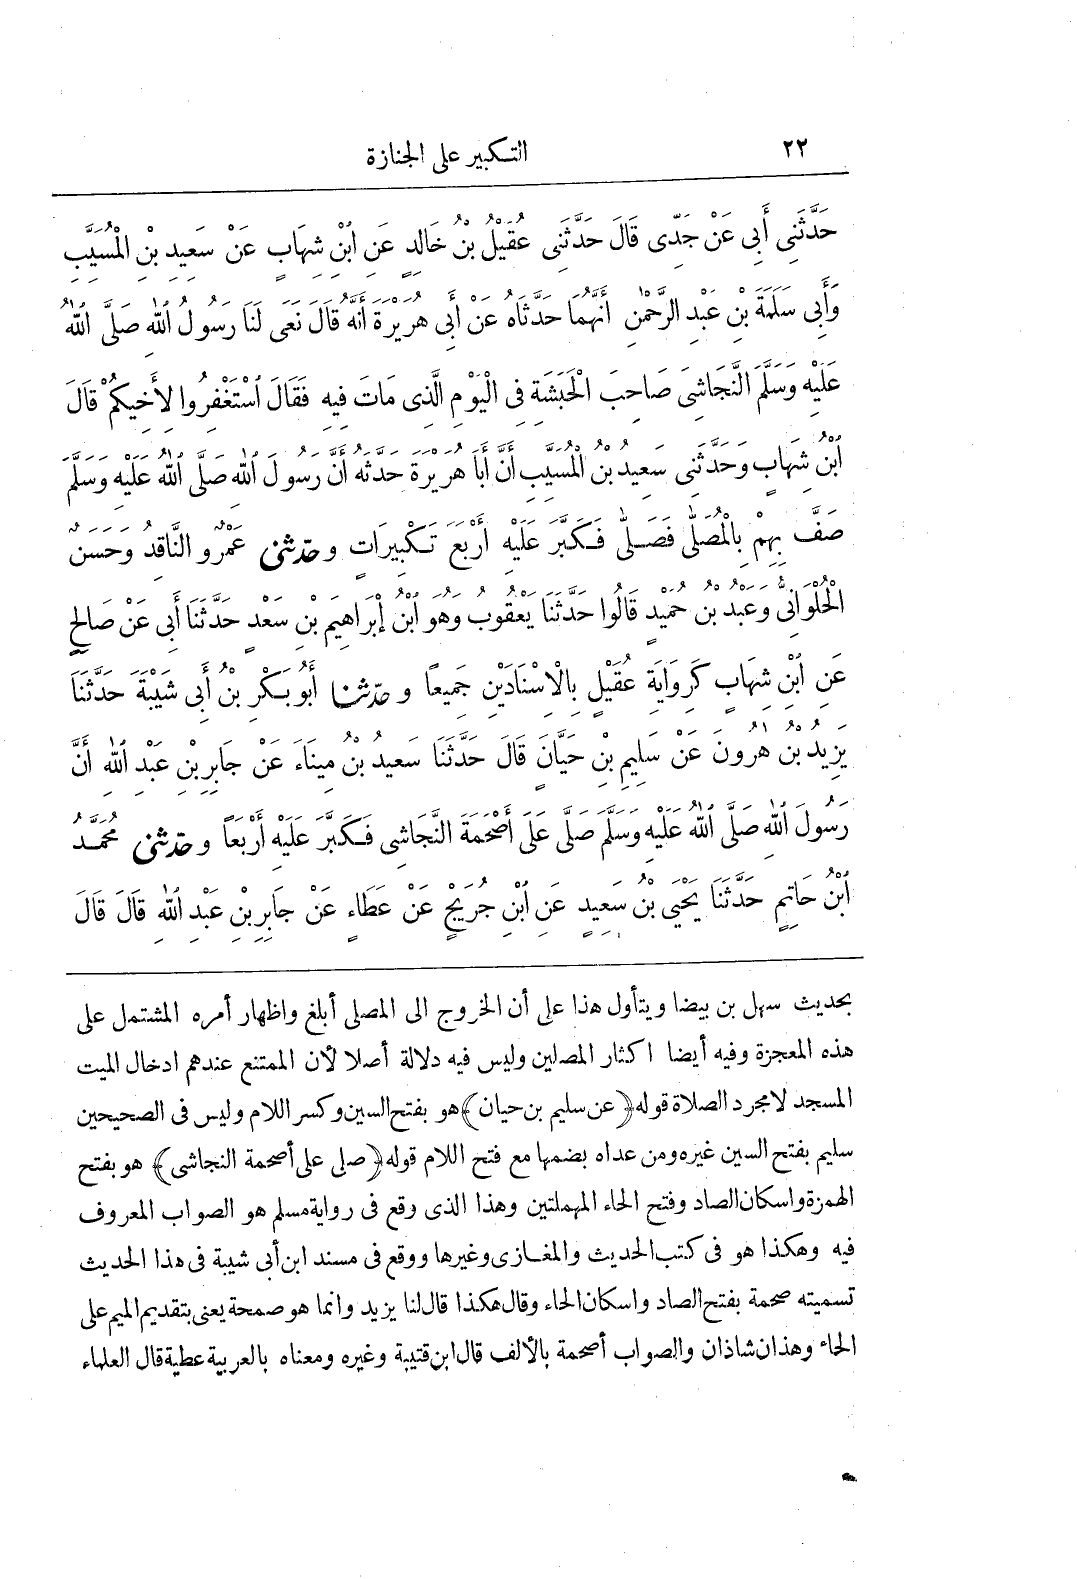 ٢٢
التكبير على الجنازة
حَدَّثَنِى أَبِى عَنْ جَدِّى قَالَ حَدَّثَنِى عُقَيْلُ بْنُ خَالِدٍ عَنِ ابْنِ شِهَابٍ عَنْ سَعِيدِ بْنِ الْمُسَيَّبِ
وَأَبِى سَلَمَةَ بْنِ عَبْدِ الرَّحْمٰنِ أَنَّهُمَا حَدَّثَاهُ عَنْ أَبِى هُرَيْرَةَ أَنَّهُ قَالَ نَعَى لَنَا رَسُولُ اللّٰهِ صَلَّى اللّٰهُ
عَلَيْهِ وَسَلَّمَ النَّجَاشِىَ صَاحِبَ الْحَبَشَةِ فِى الْيَوْمِ الَّذِى مَاتَ فِيهِ فَقَالَ اسْتَغْفِرُوا لِأَخِيكُمْ قَالَ
ابْنُ شِهَابٍ وَحَدَّثَنِى سَعِيدُ بْنُ الْمُسَيَّبِ أَنَّ أَبَا هُرَيْرَةَ حَدَّثَهُ أَنَّ رَسُولَ اللّٰهِ صَلَّى اللّٰهُ عَلَيْهِ وَسَلَّمَ
صَفَّ بِهِمْ بِالْمُصَلَّى فَصَلَّى فَكَبَّرَ عَلَيْهِ أَرْبَعَ تَكْبِيرَاتٍ و حدثنى عَمْرٌو النَّاقِدُ وَحَسَنٌ
الْحُلْوَانِىُّ وَعَبْدُ بْنُ حُمَيْدٍ قَالُوا حَدَّثَنَا يَعْقُوبُ وَهُوَ ابْنُ إِبْرَاهِيمَ بْنِ سَعْدٍ حَدَّثَنَا أَبِى عَنْ صَالِحٍ
عَنِ ابْنِ شِهَابٍ كَرِوَايَةِ عُقَيْلٍ بِالْاِسْنَادَيْنِ جَمِيعًا و حدثنا أَبُو بَكْرِ بْنُ أَبِى شَيْبَةَ حَدَّثَنَا
يَزِيدُ بْنُ هٰرُونَ عَنْ سَلِيمِ بْنِ حَيَّانَ قَالَ حَدَّثَنَا سَعِيدُ بْنُ مِينَاءَ عَنْ جَابِرِ بْنِ عَبْدِ اللّٰهِ أَنَّ
رَسُولَ اللّٰهِ صَلَّى اللّٰهُ عَلَيْهِ وَسَلَّمَ صَلَّى عَلَى أَصْحَمَةَ النَّجَاشِى فَكَبَّرَ عَلَيْهِ أَرْبَعًا و حدثنى مُحَمَّدُ
ابْنُ حَاتِمٍ حَدَّثَنَا يَحْيَى بْنُ سَعِيدٍ عَنِ ابْنِ جُرَيْجٍ عَنْ عَطَاءٍ عَنْ جَابِرِ بْنِ عَبْدِ اللّٰهِ قَالَ قَالَ
بحديث سهل بن بيضا ويتأول هذا على أن الخروج الى المصلى أبلغ واظهار أمره المشتمل على
هذه المعجزة وفيه أيضا اكثار المصلين وليس فيه دلالة أصلا لأن الممتنع عندهم ادخال الميت
المسجد لا مجرد الصلاة قوله ﴿عن سليم بن حيان﴾ هو بفتح السين وكسر اللام وليس فى الصحيحين
سليم بفتح السين غيره ومن عداه بضمها مع فتح اللام قوله ﴿صلى على أصحمة النجاشى﴾ هو بفتح
الهمزة واسكان الصاد وفتح الحاء المهملتين وهذا الذى وقع فى رواية مسلم هو الصواب المعروف
فيه وهكذا هو فى كتب الحديث والمغازى وغيرها ووقع فى مسند ابن أبى شيبة فى هذا الحديث
تسميته صحمة بفتح الصاد واسكان الحاء وقال هكذا قال لنا يزيد وانما هو صمحة يعنى بتقديم الميم على
الحاء وهذان شاذان والصواب أصحمة بالألف قال ابن قتيبة وغيره ومعناه بالعربية عطية قال العلماء